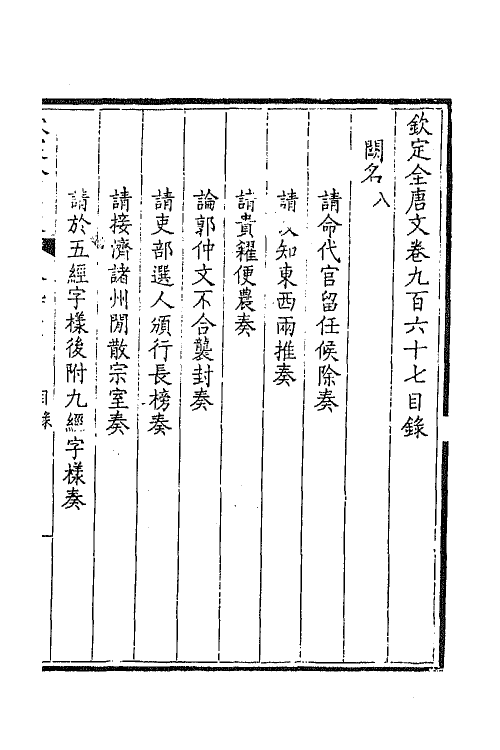 欽定全唐文卷九百六十七目錄
闕名八
請命代官留任候除奏
請 知東西兩推奏
請貴糴便農奏
論郭仲文不合襲封奏
請吏部選人頒行長榜奏
請接濟諸州閒散宗室奏
請於五經字樣後附九經字樣奏
目錄